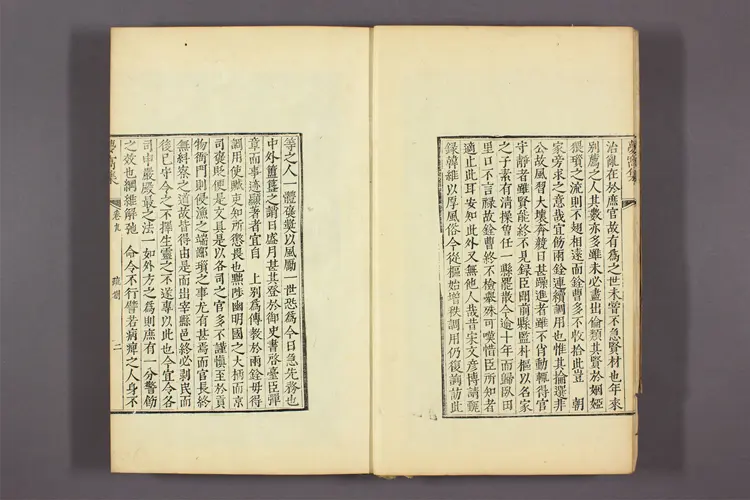 夢窩集
治亂在於庶官故有爲之世未嘗不急賢材也年來
別薦之人其數亦多雖未必盡出倫類其賢於姻婭
猥瑣之流則不翅相遠而銓曹多不收拾此豈　朝
家旁求之意哉宜飭兩銓連續調用也惟其掄選非
公故風習大壞奔競日甚躁進者雖不肖動輒得官
守靜者雖賢能終不見錄臣聞前縣監朴樞以名家
之子素有清操曾任一縣罷散今逾十年而歸臥田
里口不言祿故銓曹終不檢擧殊可嘆惜臣所知者
適止此耳安知此外又無他人哉昔宋文彥博請襃
錄韓維以厚風俗今從樞始增秩調用仍復詢訪此
等之人一體襃奬以風勵一世恐爲今日急先務也
中外簠簋之謂日盛月甚其登於御史書啓臺臣彈
章而事迹顯著者宜自　上別爲傳敎於兩銓毋得
調用使贓吏知所懲畏也黜陟幽明國之大柄而京
司褒貶便是文具是以各司之官多不謹愼至於貢
物衙門則侵漁之端鄙瑣之事尤有甚焉而官長終
無糾察之道故皆得由是而出宰縣邑終必剥民而
後已守令之不擇生靈之不遂專以此也今宜令各
司申嚴殿最之法一如外方之爲則庶有一分警飭
之效也綱維解弛　命令不行譬若病痺之人身不
夢窩集　卷九　疏箚　二